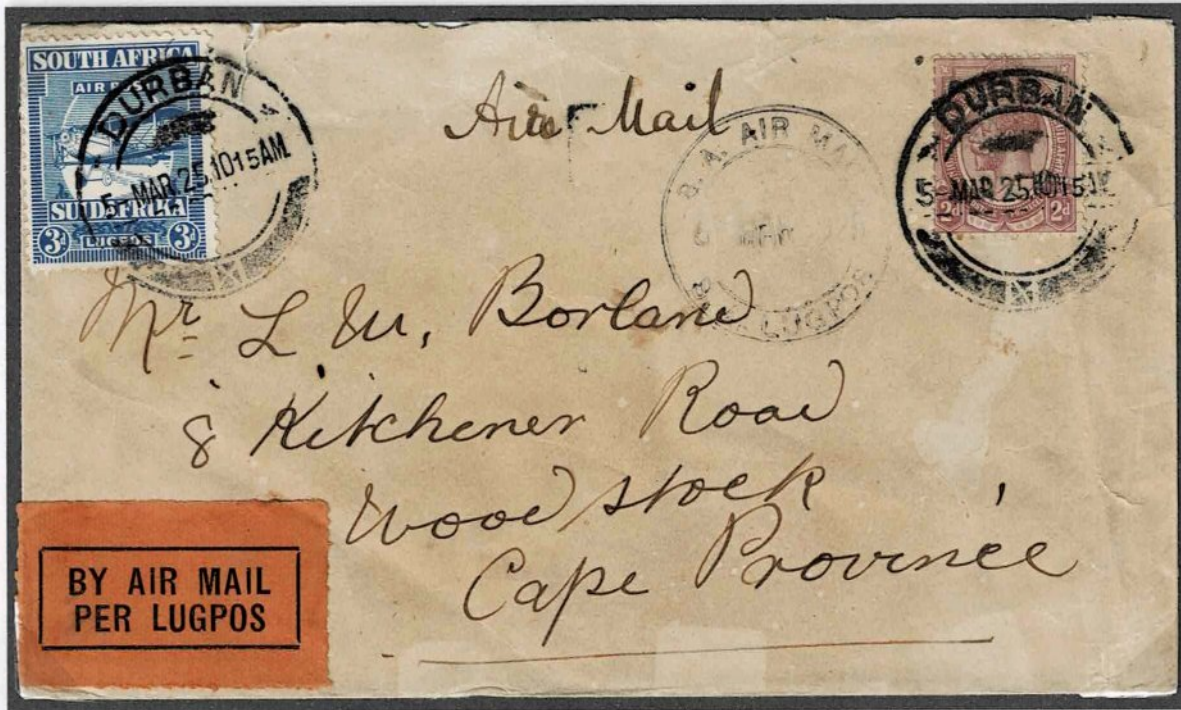 SOUTH AFRICA
AIR
SUIDAFRIKA
3d LUGPOS 3d
DURBAN
5-MAR 25 10 15 AM
Air Mail
S. A. AIR MAI
LUGPOS
DURBAN
5-MAR 25 10 15 AM
2d 2d
Mr L M. Borland
8 Kitchener Road
Woodstock
Cape Province
BY AIR MAIL
PER LUGPOS